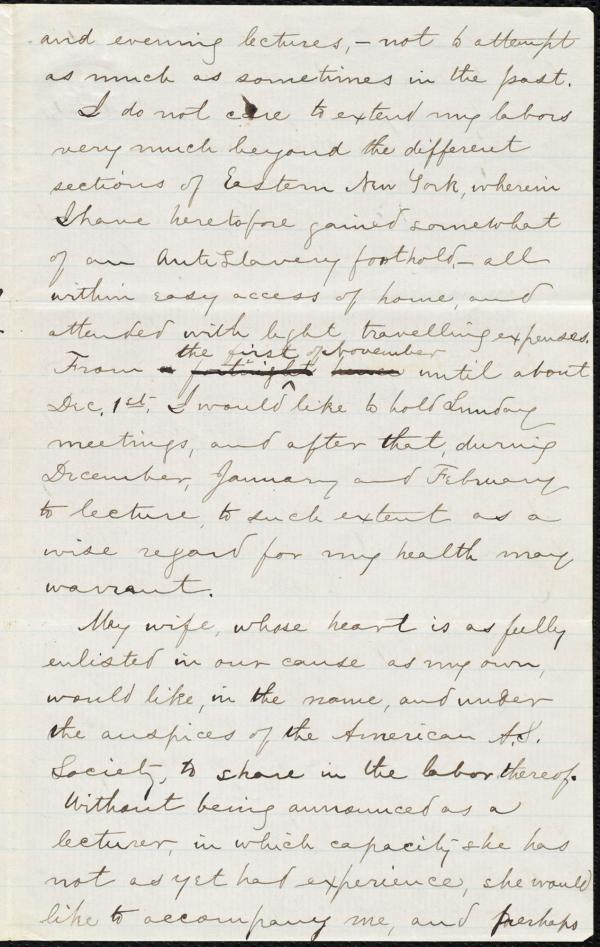 and evening lectures, – not to attempt
as much as sometimes in the past.
I do not care to extend my labors
very much beyond the different
sections of Eastern New York, wherein
I have heretofore gained somewhat
of an AntiSlavery foothold, – all
within easy access of home, and
attended with light travelling expenses.
the first of November
From a fortnight hence until about
Dec. 1st. I would ^ like to hold Sunday
meetings, and after that, during
December, January and February
to lecture, to such extent as a
wise regard for my health may
warrant.
My wife, whose heart is as fully
enlisted in our cause as my own,
would like, in the name, and under
the auspices of the American A.S.
Society, to share in the labor thereof.
Without being announced as a
lecturer, in which capacity she has
not as yet had experience, she would
like to accompany me, and perhaps